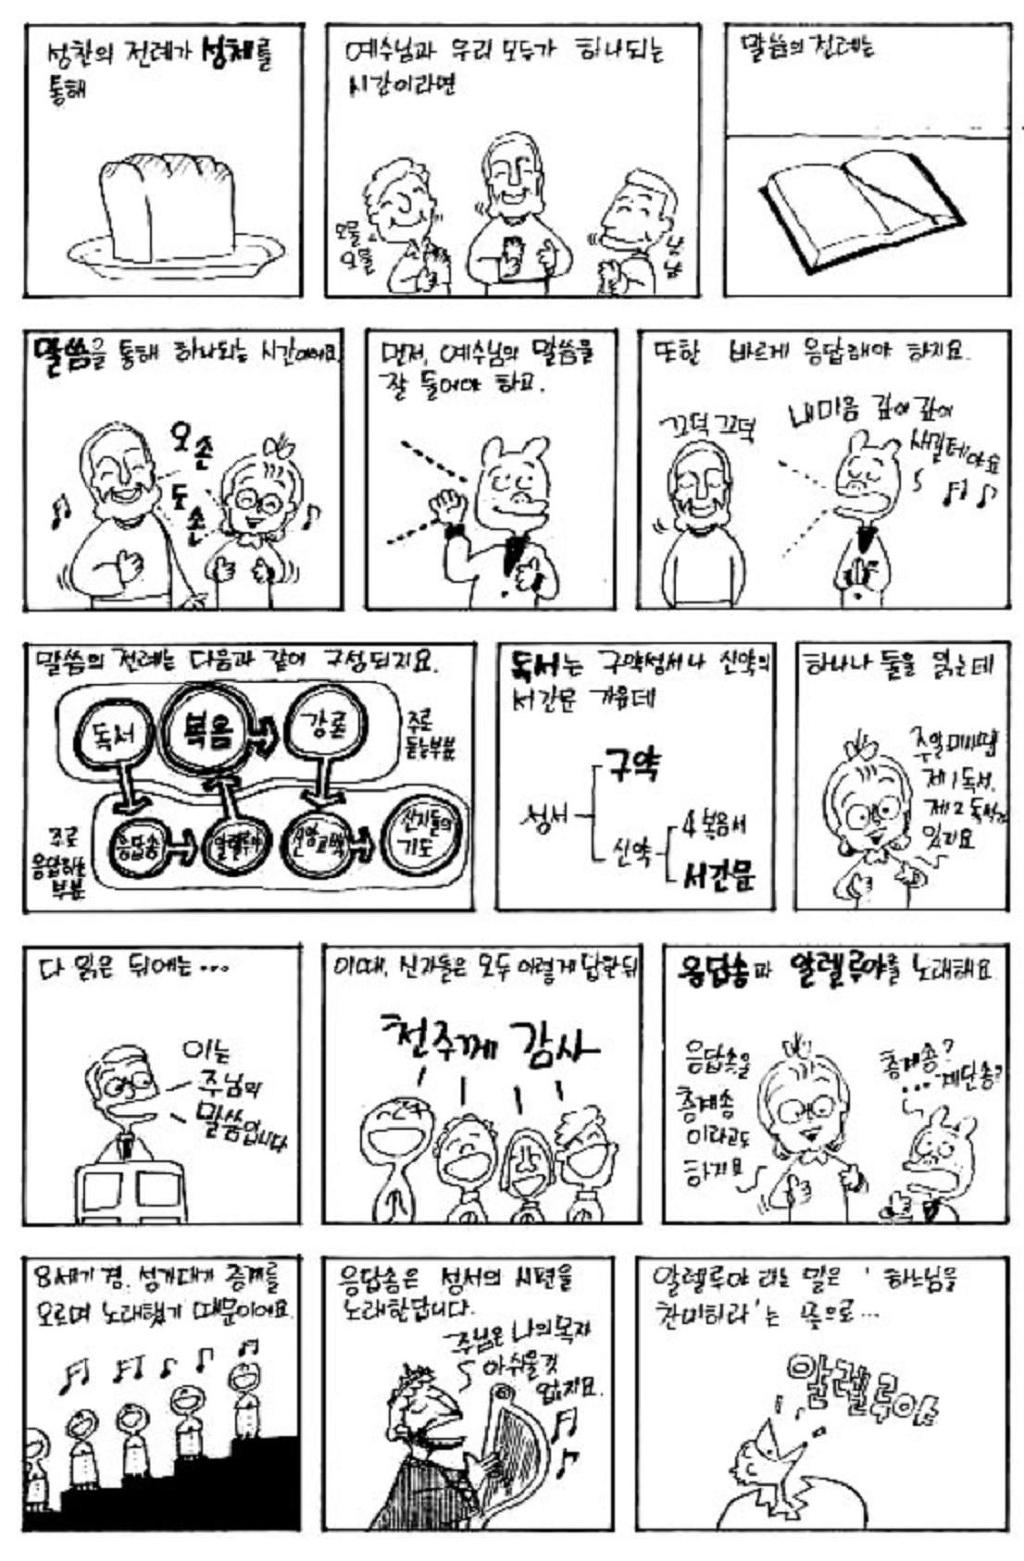 성찬의 전례가 성체를
통해
예수님과 우리 모두가 하나되는
시간이라면
오물
오물
냠
냠
말씀의 전례는
말씀을 통해 하나되는 시간이에요.
오손
도손
먼저, 예수님의 말씀을
잘 들어야 하고.
또한 바르게 응답해야 하지요.
끄덕끄덕
내마음 깊이 깊이
새길테야요
말씀의 전례는 다음과 같이 구성되지요.
독서
복음
강론
주로
듣는부분
주로
응답하는
부분
응답송
알렐루야
신앙고백
신자들의
기도
독서는 구약성서나 신약의
서간문 가운데
성서
구약
신약
4복음서
서간문
하나나 둘을 읽는데
주일미사땐
제1독서,
제2독서가
있지요
다 읽은 뒤에는...
이는
주님의
말씀입니다
이때, 신자들은 모두 이렇게 답한뒤
천주께 감사
응답송과 알렐루야를 노래해요
응답송을
층계송
이라고도
하지요
층계송?
...계단송?
8세기경, 성가대가 층계를
오르며 노래했기 때문이에요.
응답송은 성서의 시편을
노래한답니다.
주님은 나의목자
아쉬울것
없지요.
알렐루야 라는 말은 '하느님을
찬미하라'는 뜻으로...
알렐루야